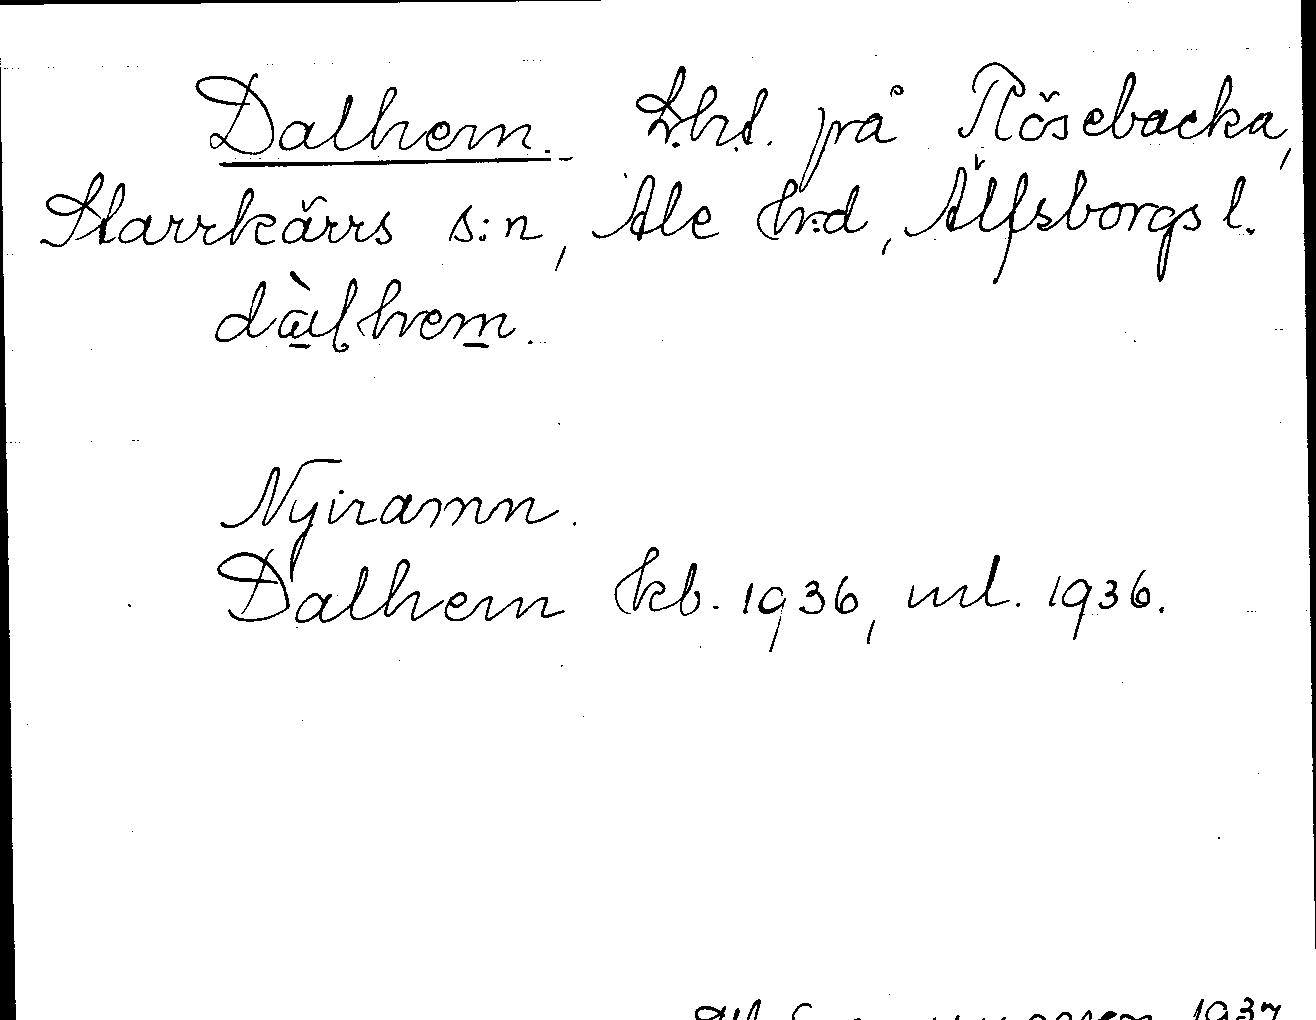 Dalhem. Lht. på Rösebacka,
Starrkärrs s:n, Ale hrd, Älfsborgs l.
dàlhem.
Nyinamn.
Dalhem kb. 1936, ml. 1936.
1937